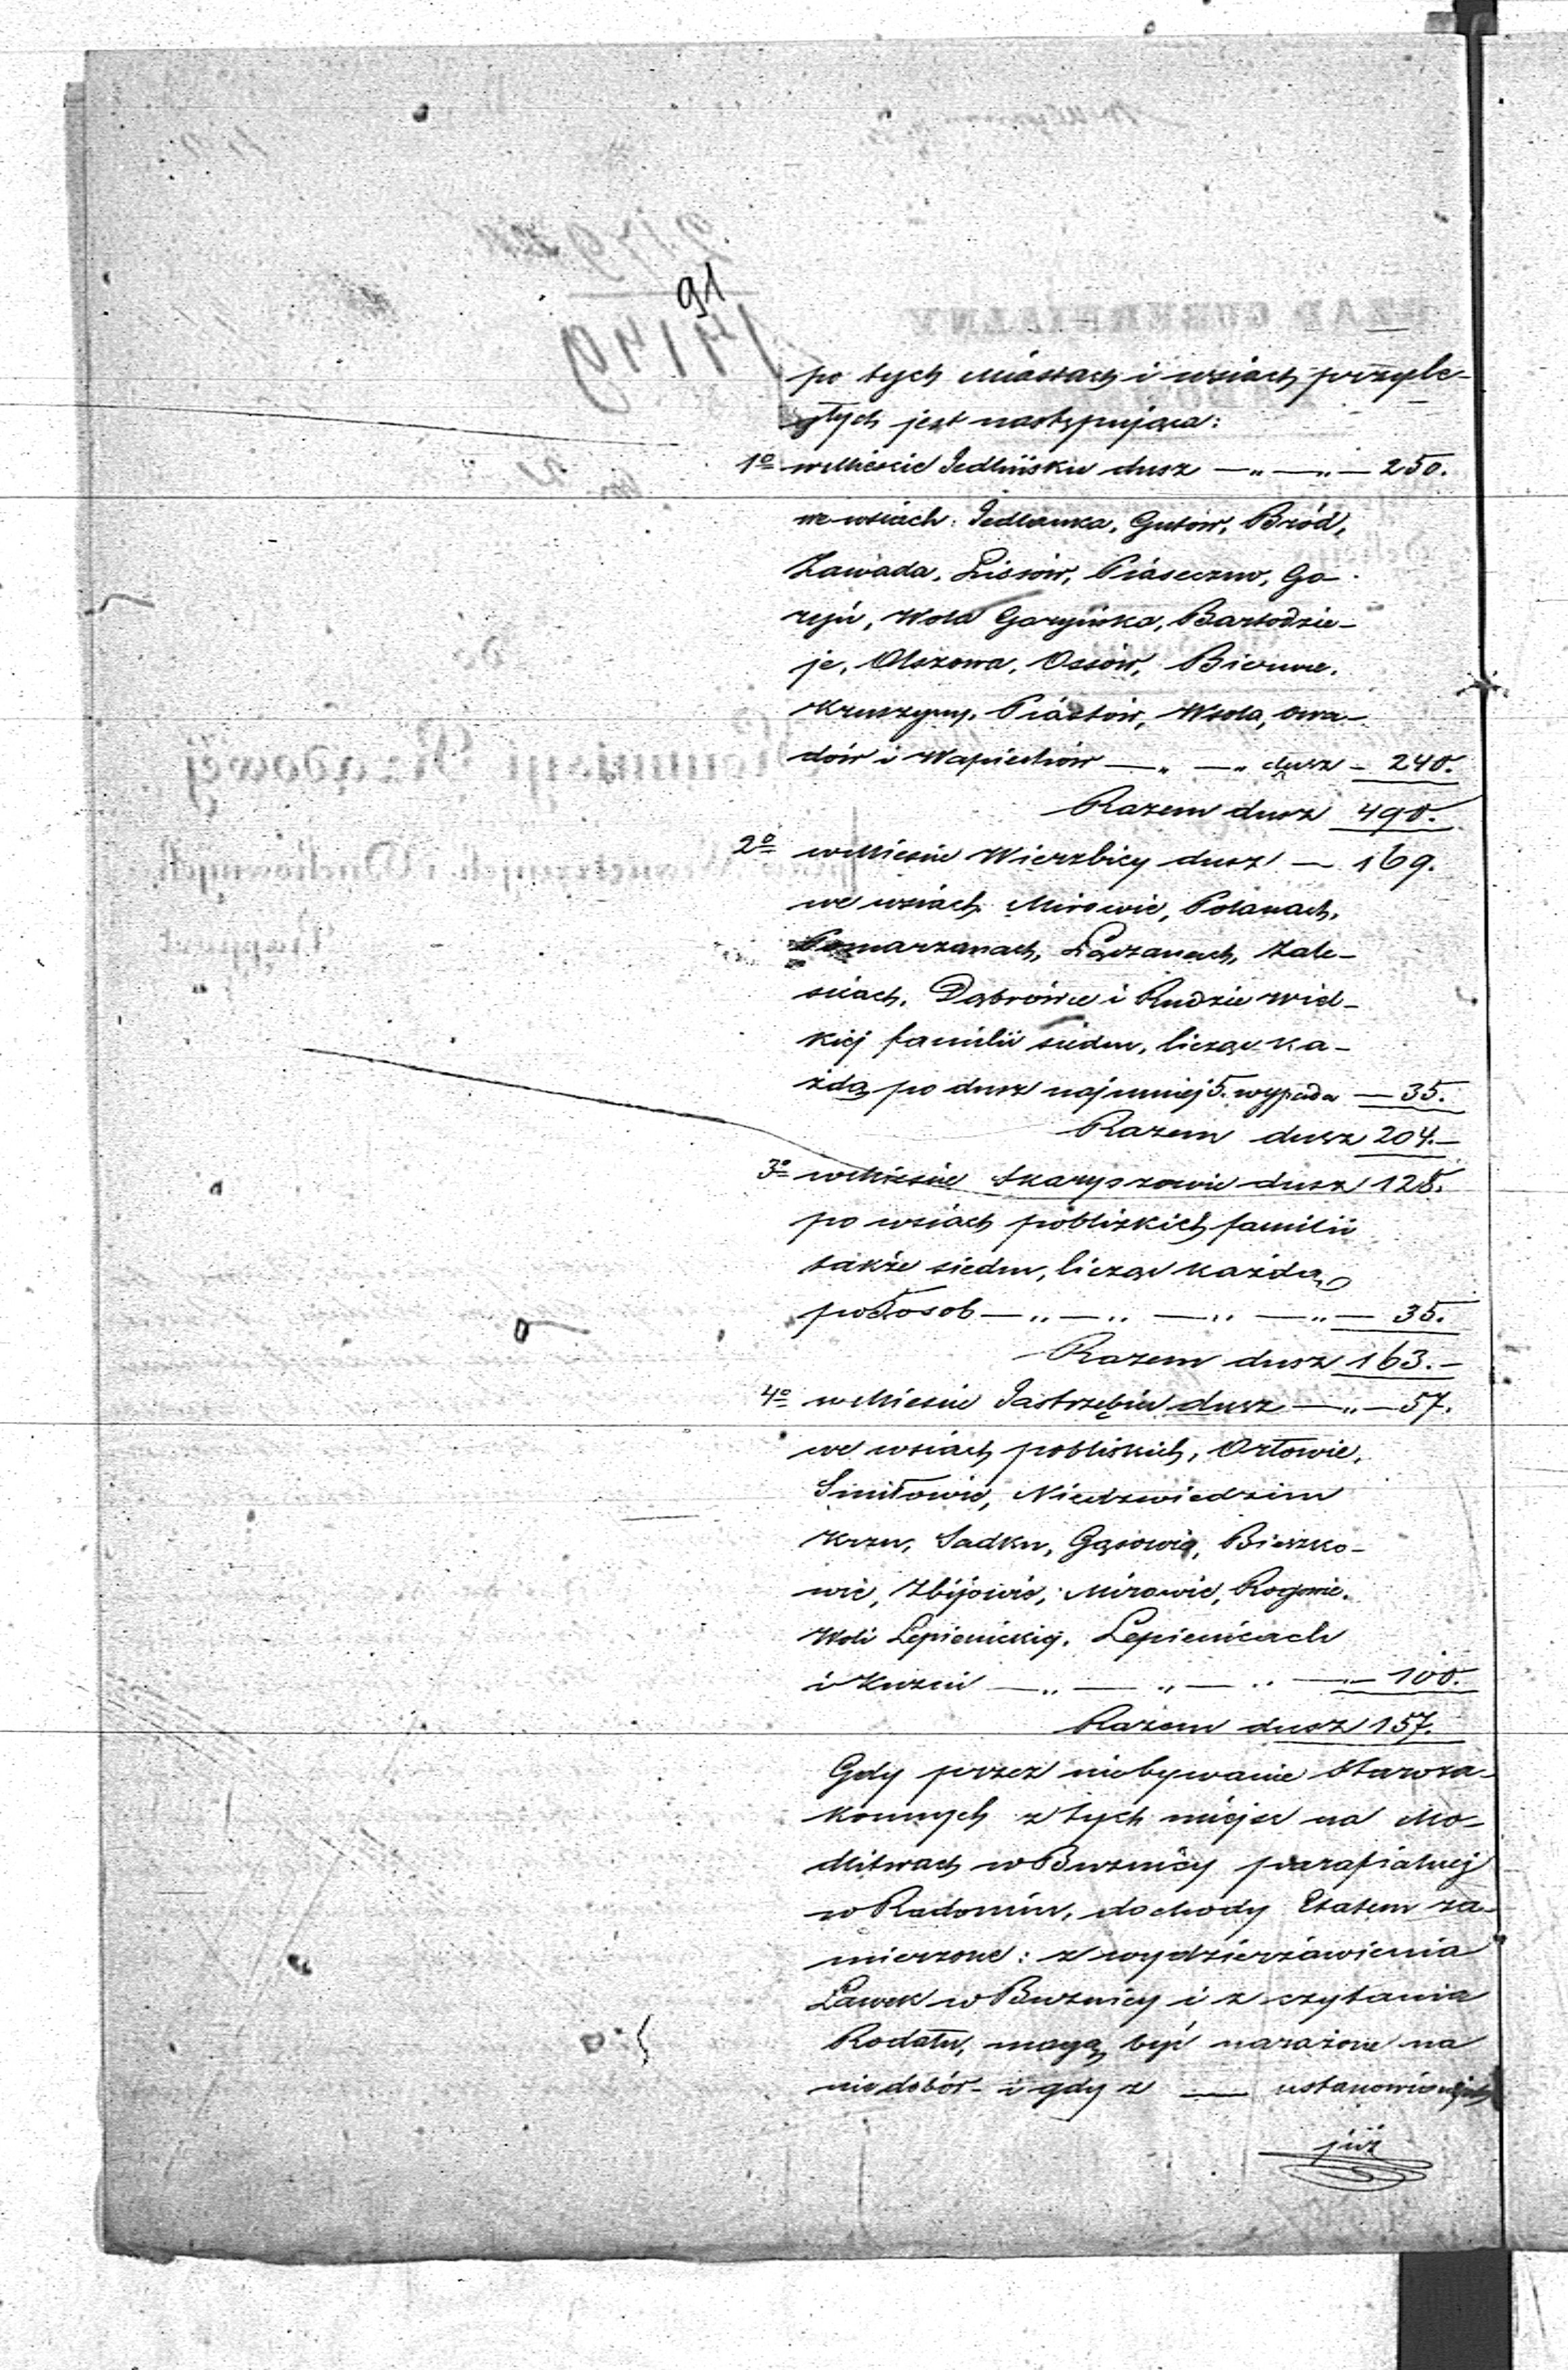 91
po tych Miastach i wsiach przyle-
głych jest następująca:
1o w Mieście Jedlińsku dusz — „ — „ — 250.
we wsiach: Jedlanka, Gutów, Bród,
Zawada, Lissów, Piaseczno, Go-
ryń, Wola Goryńska, Bartodzie-
je, Olszowa, Ossów, Bierwce,
Kruszyny, Piastów, Wsola, Owa-
dów i Wapiechów — „ — „ dusz - 240.
Razem dusz 490.
2o w Mieście Wierzbicy dusz — 169.
we wsiach Mirowie, Polanach,
Pomarzanach, Łączanach, Zale-
sicach, Dąbrówce i Rudzie Wiel-
kiej familii siedm, licząc ka-
żdą po dusz najmniej 5. wypada — 35.
Razem dusz 204.—
3o w Mieście Skaryszowie dusz 128.
po wsiach poblizkich familii
także siedm, licząc każdą
po 5 osob — „ — „ — „ — „ — 35.
Razem dusz 163.—
4o w Mieście Jastrzębiu dusz — „ — 57.
we wsiach pobliskich, Orłowie,
Smiłowie, Niedzwiedzim
Krzu, Sadku, Gąsowie, Bieszko-
wie, Zbijowie, Mirowie, Rogowie,
Woli Lepienickiej, Lepienicach
i Kuzni — „ — „ — „ — „ — 100.
Razem dusz 157.
Gdy przez niebywanie Staroza-
konnych z tych miejsc na Mo-
dlitwach w Buznicy parafialnej
w Radomiu, dochody Etatem za-
mierzone: z wydzierżawienia
Ławek w Buznicy i z czytania
Rodału, mogą być narażone na
niedobór - i gdy z — ustanowionych
już